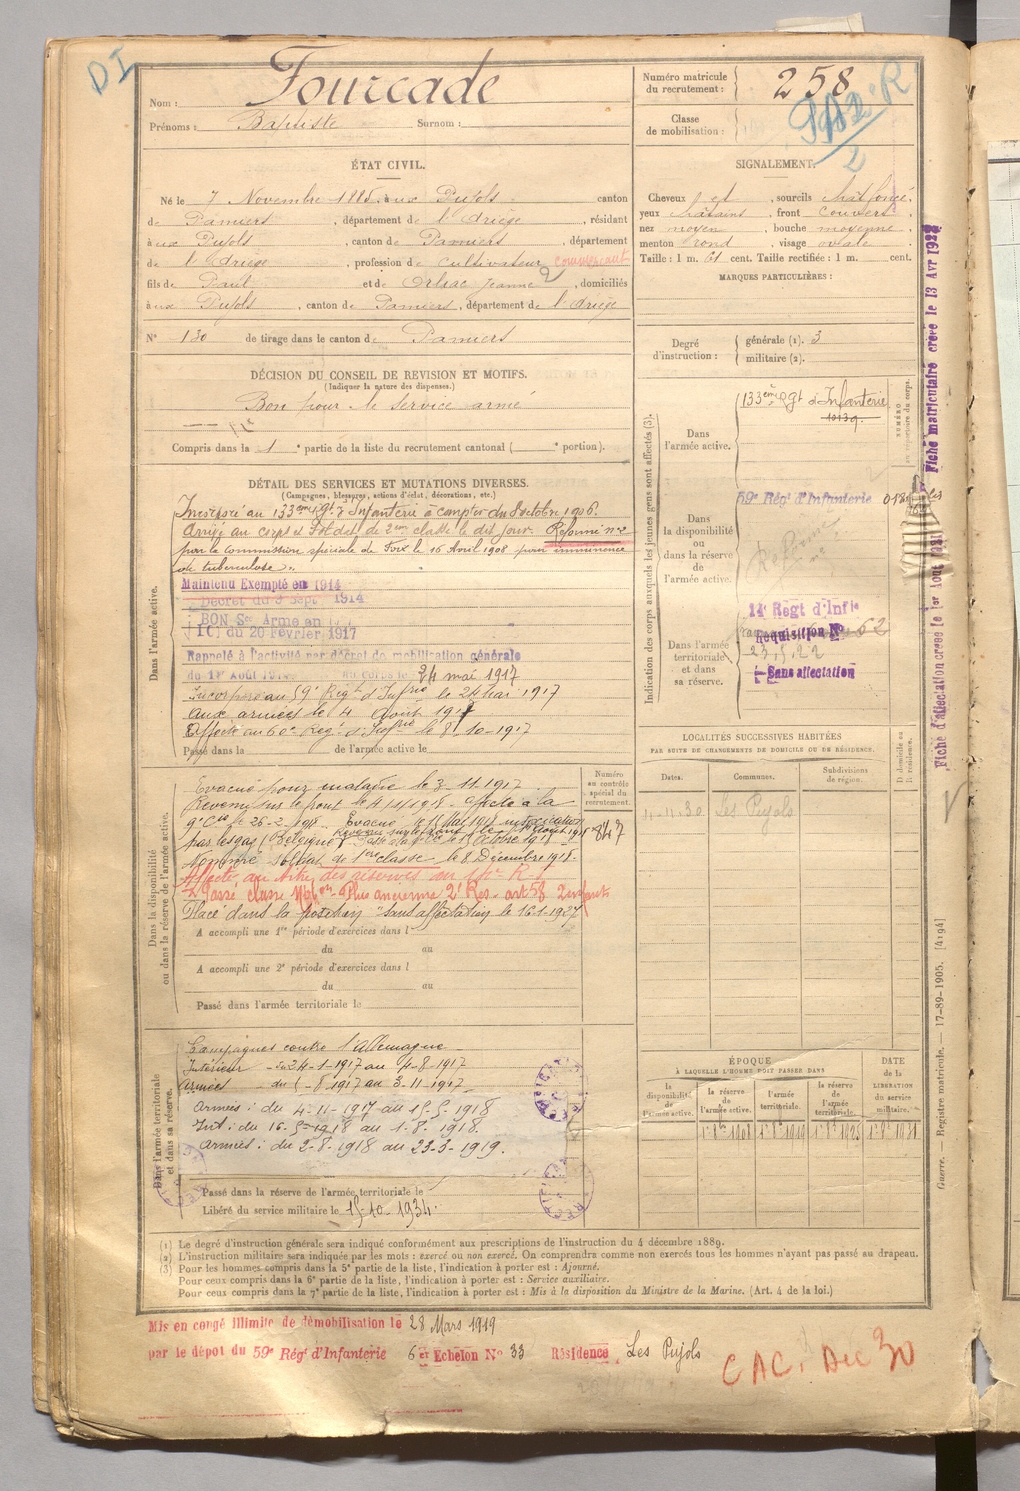 DI
Nom : Fourcade
Prénoms : Baptiste Surnom :
Numéro matricule du recrutement : 258
Classe de mobilisation :
ÉTAT CIVIL.
Né le 7 Novembre 1885, à ux Pujols canton
de Pamiers, département de l'Ariège, résidant
à ux Pujols, canton de Pamiers, département
de l'Ariège, profession de cultivateur commerçant
fils de Paul et de Jeanne 2, domiciliés
à ux Pujols, canton de Pamiers, département de l'Ariège
N° 130 de tirage dans le canton de Pamiers
SIGNALEMENT.
Cheveux et, sourcils chât foncé,
yeux châtains, front couvert,
nez moyen, bouche moyenne,
menton rond, visage ovale
Taille : 1 m. 61 cent. Taille rectifiée : 1 m. cent.
MARQUES PARTICULIÈRES :
Degré d'instruction : générale (1). 3
militaire (2).
DÉCISION DU CONSEIL DE REVISION ET MOTIFS.
(Indiquer la nature des dispenses.)
Bon pour le service armé
Compris dans la 1e partie de la liste du recrutement cantonal ( e portion).
DÉTAIL DES SERVICES ET MUTATIONS DIVERSES.
(Campagnes, blessures, actions d'éclat, décorations, etc.)
Dans l'armée active.
Incorporé au 133ème Rgt d'Infanterie à compter du 8 octobre 1906.
Arrivé au corps et soldat de 2ème classe le dit jour. Réformé n° 2
par la commission spéciale de Foix le 16 Avril 1908 pour imminence
de tuberculose.
Maintenu Exempté en 1914
Décret du 9 Sept 1914
BON Sce Armé en
du 20 Février 1917
Rappelé à l'activité par décret de mobilisation générale
du 1er Août 1914 au corps le 24 mai 1917
Incorporé au 59e Regt d'Infrie le 24 Mai 1917
Aux armées le 4 Août 1917
Affecté au 60e Reg. d'Infrie le 8-10-1917
Passé dans la de l'armée active le
Indication des corps auxquels les jeunes gens sont affectés (3).
Dans l'armée active.
133ème Rgt d'Infanterie
NUMÉRO au répertoire du corps.
Dans la disponibilité ou dans la réserve de l'armée active.
59e Régt d'Infanterie
Réformé
Dans l'armée territoriale et dans sa réserve.
14e Régt d'Infie
Réquisition N° 62
23.5.22
Sans affectation
Fiche matriculaire créée le 13 Avr
Fiche d'affectation créée le 1er Août
Dans la disponibilité ou dans la réserve de l'armée active.
Numéro au contrôle spécial du recrutement.
847
Evacué pour maladie le 3.11.1917
Revenu sur le front le 4-11-1918 - affecté à la
9e Cie le 26-2-1918. Evacué le 15 Mai 1918 intoxication
par les gaz (Belgique) Revenu sur le front le 1er Août 1918
Nommé soldat de 1ère classe le 8 Décembre 1918.
Affecté au des réserves au R.I
Passé classe Plus ancienne 2e Res. art 58 2 enfants
Placé dans la position "sans affectation le 16-1-1927
A accompli une 1re période d'exercices dans l
du au
A accompli une 2e période d'exercices dans l
du au
Passé dans l'armée territoriale le
LOCALITÉS SUCCESSIVES HABITÉES
PAR SUITE DE CHANGEMENTS DE DOMICILE OU DE RÉSIDENCE.
Dates. Communes. Subdivisions de région. D. domicile ou R. résidence.
4.11.30 Les Pujols
Dans l'armée territoriale et dans sa réserve.
Campagnes contre l'Allemagne
Intérieur du 24-1-1917 au 4-8-1917
Armées du 5-8-1917 au 3-11-1917
Armées : du 4-11-1917 au 15-5-1918
Int : du 16-5-1918 au 1-8-1918.
Armées : du 2-8-1918 au 23-3-1919.
Passé dans la réserve de l'armée territoriale le
Libéré du service militaire le 15-10-1934.
ÉPOQUE
À LAQUELLE L'HOMME DOIT PASSER DANS
la disponibilité de l'armée active. la réserve de l'armée active. l'armée territoriale. la réserve de l'armée territoriale.
DATE de la LIBÉRATION du service militaire.
Guerre. — Registre matricule. — 17-89-1905. [4194]
(1) Le degré d'instruction générale sera indiqué conformément aux prescriptions de l'instruction du 4 décembre 1889.
(2) L'instruction militaire sera indiquée par les mots : exercé ou non exercé. On comprendra comme non exercés tous les hommes n'ayant pas passé au drapeau.
(3) Pour les hommes compris dans la 5e partie de la liste, l'indication à porter est : Ajourné.
Pour ceux compris dans la 6e partie de la liste, l'indication à porter est : Service auxiliaire.
Pour ceux compris dans la 7e partie de la liste, l'indication à porter est : Mis à la disposition du Ministre de la Marine. (Art. 4 de la loi.)
Mis en congé illimité de démobilisation le 28 Mars 1919
par le dépôt du 59e Régt d'Infanterie 6e Echelon N° 33 Résidence Les Pujols
CAC. Dec 30